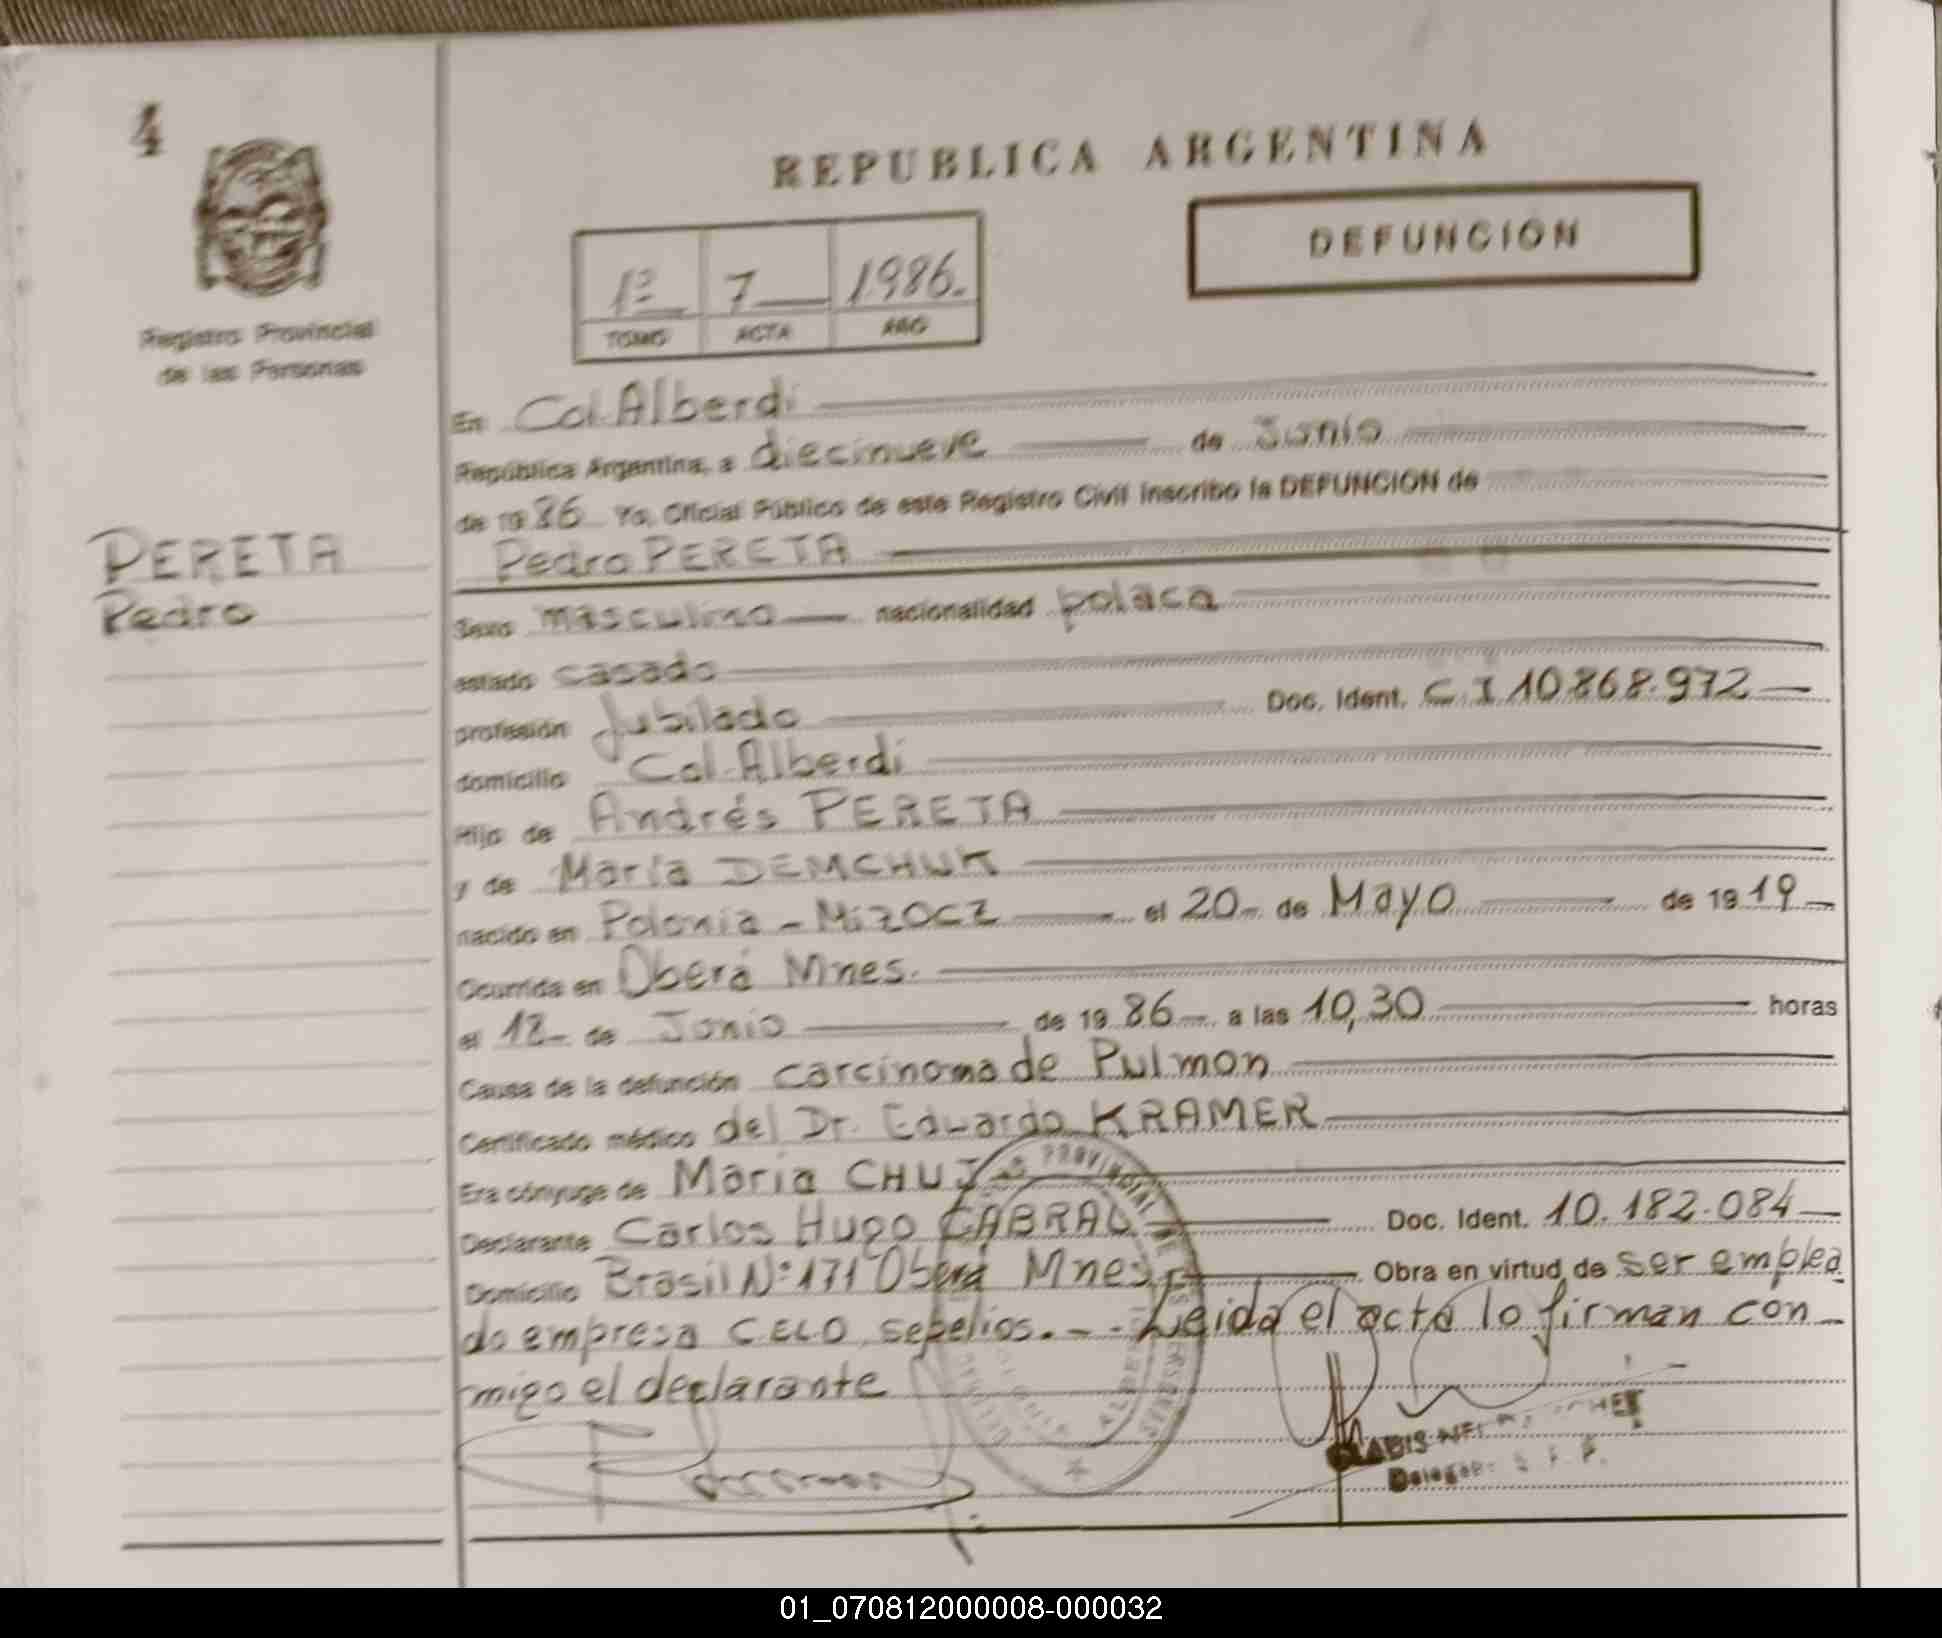 4
REPUBLICA ARGENTINA
DEFUNCION
1º 7 1986.
TOMO ACTA AÑO
Registro Provincial
de las Personas
En Col. Alberdi
República Argentina, a diecinueve de Junio
de 1986 Yo, Oficial Público de este Registro Civil inscribo la DEFUNCION de
PERETA
Pedro
Pedro PERETA
Sexo masculino nacionalidad polaca
estado casado
profesión Jubilado Doc. Ident. C I 10.868.972
domicilio Col. Alberdi
Hijo de Andrés PERETA
y de María DEMCHUK
nacido en Polonia - MizOCZ el 20 de Mayo de 1919
Ocurrida en Oberá Mnes.
el 12 de Junio de 1986 a las 10,30 horas
Causa de la defunción carcinoma de Pulmon
Certificado médico del Dr. Eduardo KRAMER
Era cónyuge de Maria CHUJ
Declarante Carlos Hugo CABRAL Doc. Ident. 10.182.084
Domicilio Brasil Nº 171 Oberá Mnes. Obra en virtud de ser emplea
do empresa CELO sepelios. - - Leida el acta lo firman con
migo el declarante
PROVINCIAL DE LAS PERSONAS
ALBERDI
01_070812000008-000032